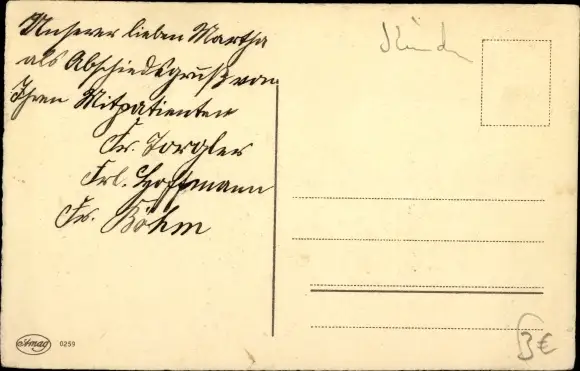 Unserer lieben Martha
als Abschiedsgruß von
Ihren Mitpatienten
Fr. Torgler
Frl. Hoffmann
Fr. Böhm
Amag 0259
3€